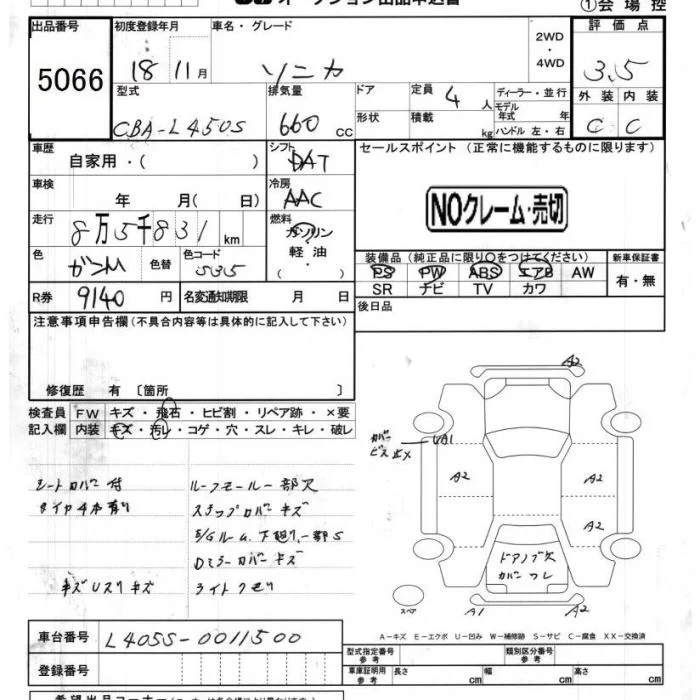 オークション出品申込書
①会場控
出品番号 5066
初度登録年月 18 11月
車名・グレード ソニカ
2WD・4WD
評価点 3.5
外装 C 内装 C
型式 CBA-L450S
排気量 660 CC
ドア
形状
定員 4 人
積載 kg
ディーラー・並行
モデル年式 年
ハンドル 左・右
車歴 自家用・( )
シフト DAT
セールスポイント (正常に機能するものに限ります)
NOクレーム・売切
車検 年 月( 日)
冷房 AAC
走行 8万5千831 km
燃料 ガソリン 軽油 ・( )
色 色替
色コード S35
装備品(純正品に限り○をつけてください)
PS PW ABS エアB AW
SR ナビ TV カワ
新車保証書 有・無
R券 9140 円
名変通知期限 月 日
後日品
注意事項申告欄(不具合内容等は具体的に記入して下さい)
修復歴 有 〔箇所 〕
検査員 FW キズ・飛石・ヒビ割・リペア跡・×要
記入欄 内装 キズ・汚レ・コゲ・穴・スレ・キレ・破レ
シートカバー付
タイヤ4本有り
キズUスリキズ
ルーフモール一部欠
ステップカバーキズ
E/Gルーム、下廻り、一部S
Dミラーカバーキズ
ライトクモリ
A2
カバー
ビス欠×
UA1
A2
A2
A2
ドアノブ欠
カバーワレ
スペア
A1
A2
A－キズ E－エクボ U－凹み W－補修跡 S－サビ C－腐食 XX－交換済
車台番号 L405S-0011500
登録番号
型式指定番号 参考
類別区分番号 参考
車庫証明用 参考 長さ cm 幅 cm 高さ cm